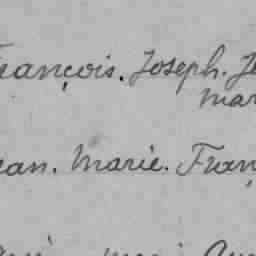 François. Joseph. Je
mar
ean. Marie. Fran